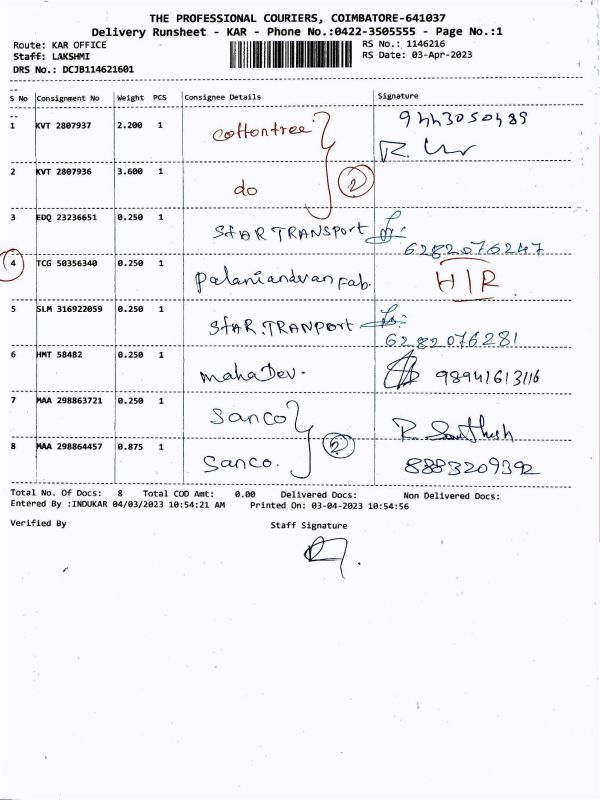 THE PROFESSIONAL COURIERS, COIMBATORE-641037
Delivery Runsheet - KAR - Phone No.:0422-3505555 - Page No.:1
Route: KAR OFFICE
Staff: LAKSHMI
DRS No.: DCJB114621601
RS No.: 1146216
RS Date: 03-Apr-2023
S No Consignment No Weight PCS Consignee Details Signature
1 KVT 2807937 2.200 1 Cottontree 9443050485
2 KVT 2807936 3.600 1 do 2
3 EDQ 23236651 0.250 1 STAR TRANSPORT 6282076247
4 TCG 50356340 0.250 1 Palaniandavan Fab. H/R
5 SLM 316922059 0.250 1 STAR.TRANPORT 6282076281
6 HMT 58482 0.250 1 mahaDev. 98941613116
7 MAA 298863721 0.250 1 Sanco R. Santhosh
8 MAA 298864457 0.875 1 Sanco. 2 8883209392
Total No. Of Docs: 8 Total COD Amt: 0.00 Delivered Docs: Non Delivered Docs:
Entered By :INDUKAR 04/03/2023 10:54:21 AM Printed On: 03-04-2023 10:54:56
Verified By Staff Signature